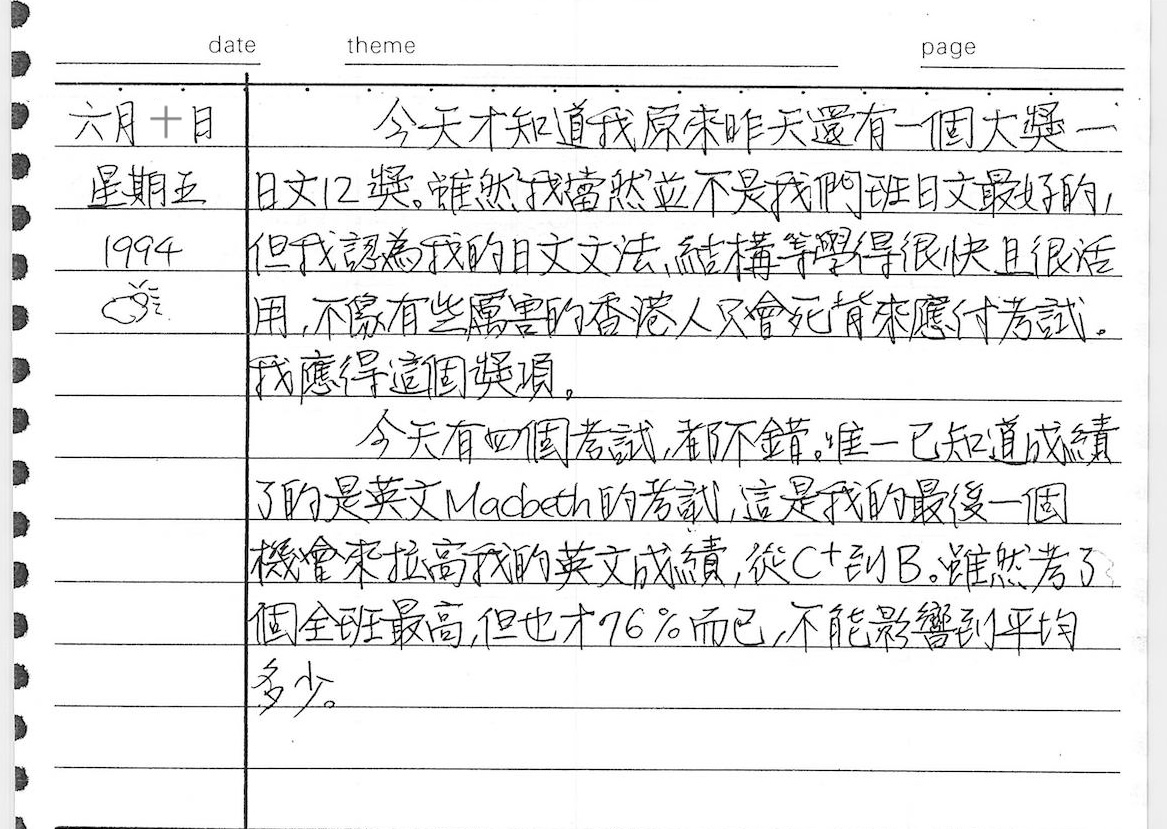 date theme page
六月十日 今天才知道我原來昨天還有一個大獎一
星期五 日文12獎。雖然我當然並不是我們班日文最好的,
1994 但我認為我的日文文法,結構等學得很快且很活
用,不像有些厲害的香港人只會死背來應付考試。
我應得這個獎項。
今天有四個考試,都不錯。唯一已知道成績
了的是英文Macbeth的考試,這是我的最後一個
機會來拉高我的英文成績,從C+到B。雖然考了
個全班最高,但也才76%而已,不能影響到平均
多少。